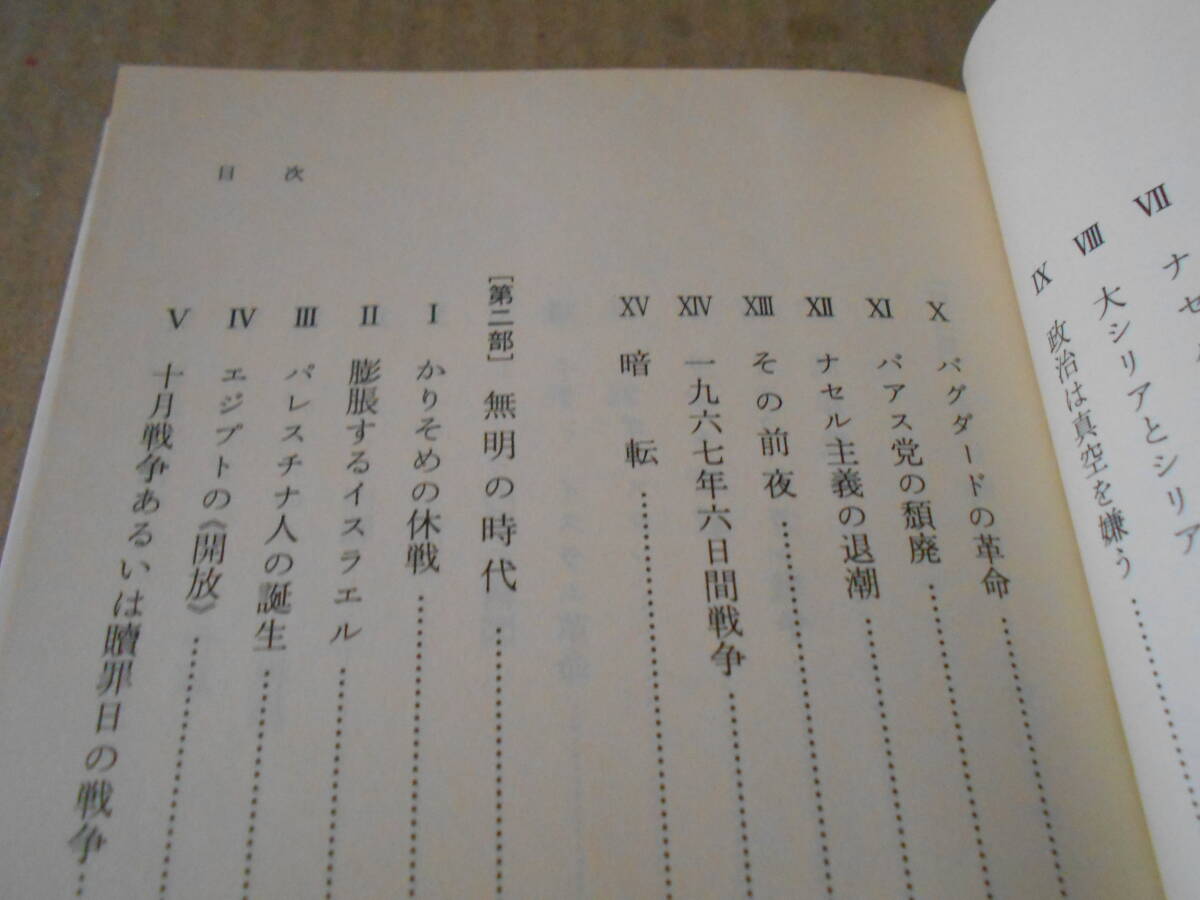 Ⅶ ナセ
Ⅷ 大シリアとシリア
Ⅸ 政治は真空を嫌う
目次
Ⅹ バグダードの革命
Ⅺ バアス党の頽廃
Ⅻ ナセル主義の退潮
XIII その前夜
XIV 一九六七年六日間戦争
XV 暗転
[第二部] 無明の時代
Ⅰ かりそめの休戦
Ⅱ 膨脹するイスラエル
Ⅲ パレスチナ人の誕生
Ⅳ エジプトの《開放》
Ⅴ 十月戦争あるいは贖罪日の戦争